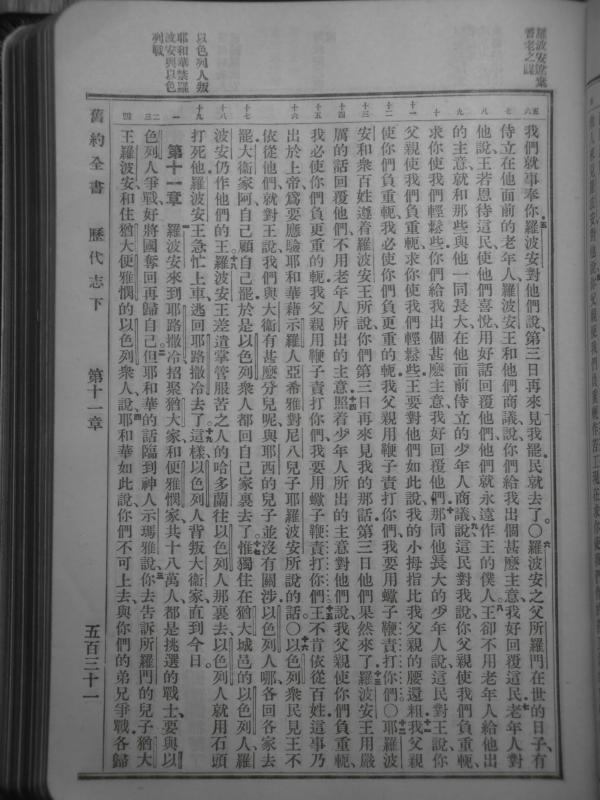 羅波安
耆老之
五六
我們就事奉你、羅波安對他們說、第三日再來見我罷、民就去了。〇羅波安之父所羅門在世的日子、有
七
侍立在他面前的老年人、羅波安王和他們商議、說、你們給我出個甚麼主意、我好回覆這民、老年人對
八
他說、王若恩待這民、使他們喜悅、用好話回覆他們、他們就永遠作王的僕人、王卻不用老年人給他出
九
的主意、就和那些與他一同長大在他面前侍立的少年人商議、說、這民對我說、你父親使我們負重軛、
十
求你使我們輕鬆些、你們給我出個甚麼主意、我好回覆他們、那同他長大的少年人說、這民對王說、你
十一
父親使我們負重軛、求你使我們輕鬆些、王要對他們如此說、我的小拇指比我父親的腰還粗、我父親
十二
使你們負重軛、我必使你們負更重的軛、我父親用鞭子責打你們、我要用蠍子鞭責打你們〇耶羅波
十三
安和衆百姓遵着羅波安王所說、你們第三日再來見我的那話、第三日他們果然來了、羅波安王用嚴
十四
厲的話回覆他們、不用老年人所出的主意、照着少年人所出的主意對他們說、我父親使你們負重軛、
十五
我必使你們負更重的軛、我父親用鞭子責打你們、我要用蠍子鞭責打你們、王不肯依從百姓、這事乃
十六
出於上帝、爲要應驗耶和華藉示羅人亞希雅對尼八兒子耶羅波安所說的話〇以色列衆民見王不
依從他們、就對王說、我們與大衛有甚麼分兒呢、與耶西的兒子並沒有關涉、以色列人哪、各回各家去
十七
罷、大衛家阿、自己顧自己罷、於是以色列衆人都回自己家裏去了、惟獨住在猶大城邑的以色列人、羅
十八
波安仍作他們的王、羅波安王差遣掌管服苦之人的哈多蘭往以色列人那裏去、以色列人就用石頭
十九
打死他、羅波安王急忙上車、逃回耶路撒冷去了、這樣以色列人背叛大衛家、直到今日。
以色列人叛
一
第十一章 羅波安來到耶路撒冷、招聚猶大家和便雅憫家、共十八萬人、都是挑選的戰士、要與以
耶和華禁羅
波安與以色
列戰
二三
色列人爭戰、好將國奪回再歸自己、但耶和華的話臨到神人示瑪雅、說、你去告訴所羅門的兒子猶大
四
王羅波安、和住猶大便雅憫的以色列衆人、說、耶和華如此說、你們不可上去與你們的弟兄爭戰、各歸
舊約全書 歷代志下 第十一章 五百三十一